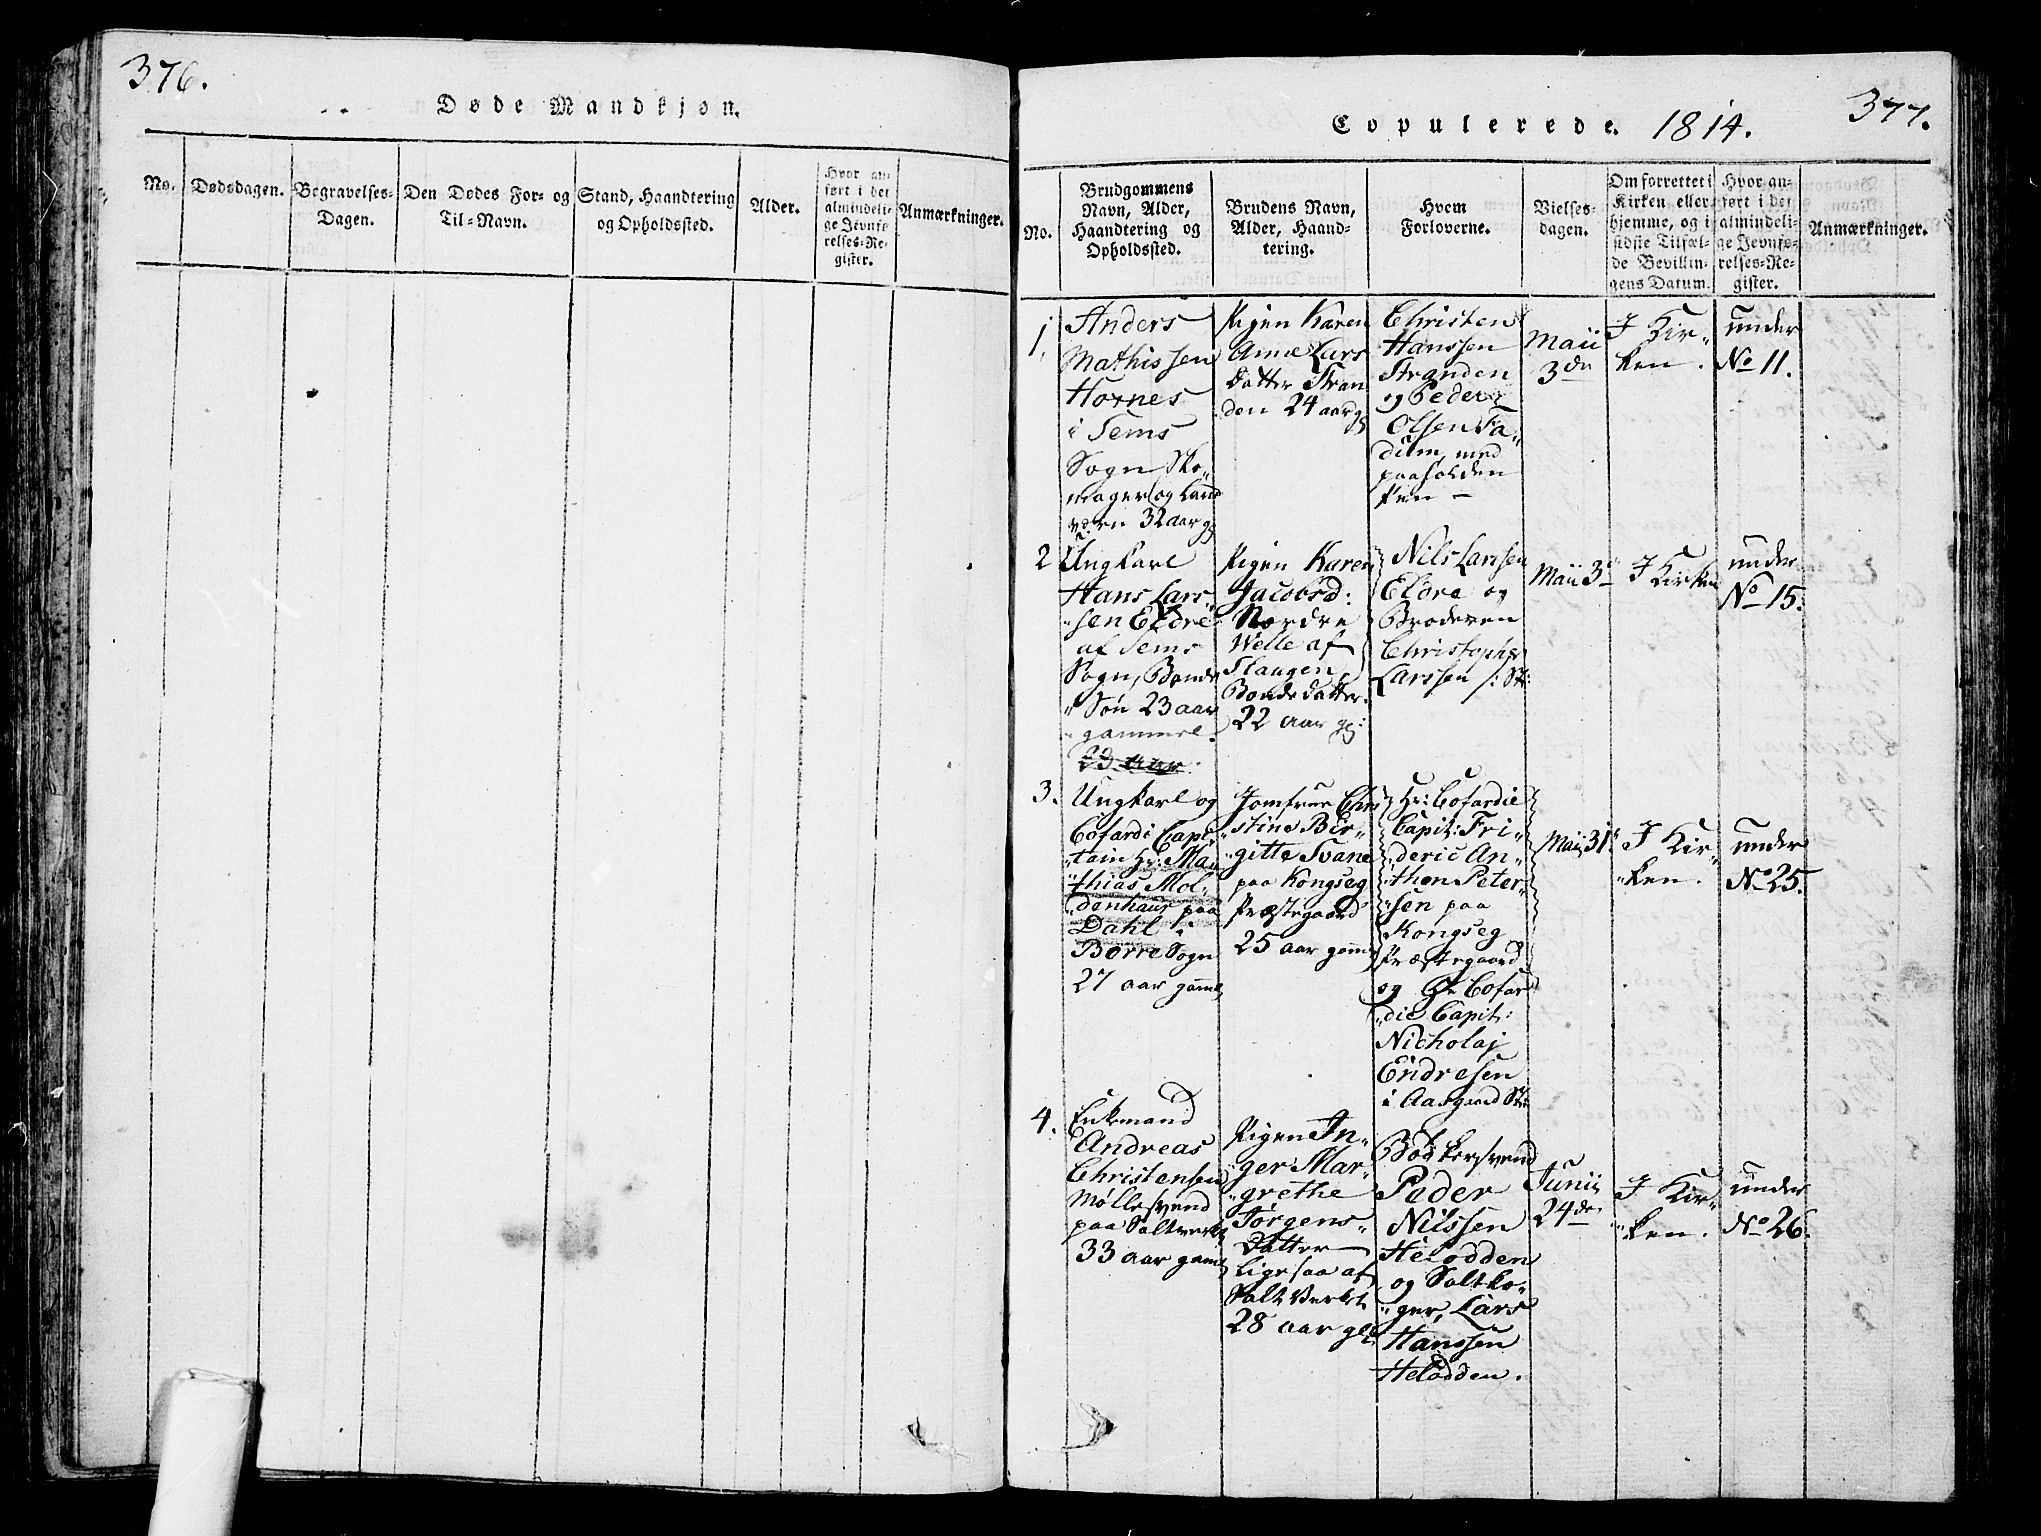 376.
Døde Mandkjøn.
No.
Dødsdagen.
Begravelses-
Dagen.
Den Dødes For- og
Til-Navn.
Stand, Haandtering
og Opholdssted.
Alder.
Hvor an-
ført i det
almindeli-
ge Jevnfø-
relses-Re-
gister.
Anmærkninger.
377.
Copulerede. 1814.
No.
Brudgommens
Navn, Alder,
Haandtering og
Opholdssted.
Brudens Navn,
Alder, Haand-
tering.
Hvem
Forloverne.
Vielses-
dagen.
Om forrettet i
Kirken eller
hjemme, og i
sidste Tilfæl-
de Bevillin-
gens Datum.
Hvor an-
ført i det
almindeli-
ge Jevnfø-
relses-Re-
gister.
Anmærkninger.
1.
Anders
Mathissen
Hornes
i Sems
Sogn Sko-
mager og Land
32 aar gl
Pigen Karen
Anne Lars
Datter Stran
den 24 aar gl
Christen
Hanssen
Stranden
og Peder
Olsen Fa-
dum, med
paaholden
Pen -
Maii
3de
I Kir-
ken.
under
No 11.
2
Ungkarl
Hans Lars-
sen Eldre
af Sems
Sogn, Bonde
Søn 23 aar
gammel.
23 aar
Pigen Karen
Jacobsd:
Nordre
Welle af
Slaugen,
Bondedatter
22 aar gl:
Nils Larsen
Eldre og
Broderen
Christopher
Larssen
Maii 3d
I Kirken
under
No 15.
3.
Ungkarl og
Cofardi Capi-
tain Hr: Mat-
thias Mol-
denhaur paa
Dahl i
Borre Sogn
27 aar gaml
Jomfrue Chri
stine Bir-
gitte Svane
paa Kongseg
Præstegaard
25 aar gaml
Hr: Cofardie
Capit: Fri-
deric An-
thon Peter-
sen paa
Kongseg
Præstegaard
og Hr Cofar
die Capit:
Nicholaj
Endresen
i Aasgaard Str
Maii 31
I Kir-
ken.
under
No 25.
4.
Enkemand
Andreas
Christensen
Møllesvend
paa Saltverket
33 aar gaml
Pigen In-
ger Mar-
grethe
Jørgens-
Datter
ligesaa af
Salt Verket
28 aar gl
Bødkersvend
Peder
Nilssen
Helodden
og Saltko-
ger, Lars
Hanssen
Helodden.
Junii
24de
I Kir-
ken.
under
No 26.